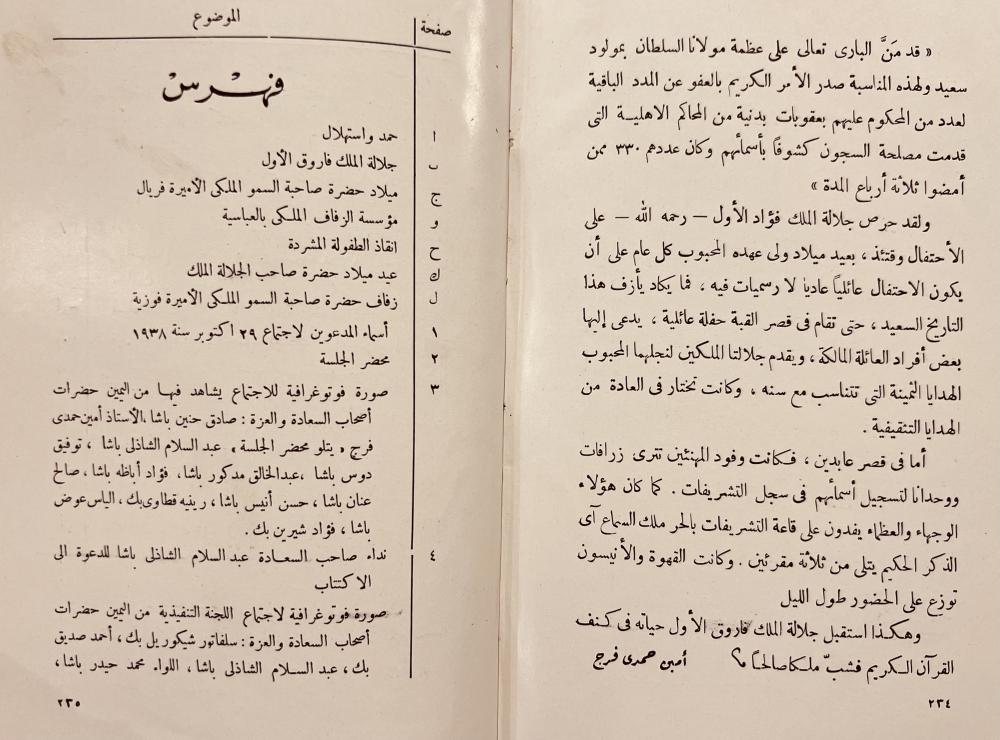 « قد مَنَّ البارى تعالى على عظمة مولانا السلطان بمولود
سعيد ولهذه المناسبة صدر الأمر الكريم بالعفو عن المدد الباقية
لعدد من المحكوم عليهم بعقوبات بدنية من المحاكم الاهلية التى
قدمت مصلحة السجون كشوفاً بأسمائهم وكان عددهم ٣٣٠ ممن
أمضوا ثلاثة أرباع المدة »
ولقد حرص جلالة الملك فؤاد الأول — رحمه الله — على
الأحتفال وقتئذ ، بعيد ميلاد ولى عهده المحبوب كل عام على أن
يكون الاحتفال عائلياً عاديا لا رسميات فيه ، فما يكاد يأزف هذا
التاريخ السعيد ، حتى تقام فى قصر القبة حفلة عائلية ، يدعى إليها
بعض أفراد العائلة المالكة ، ويقدم جلالتا الملكين لنجلهما المحبوب
الهدايا الثمينة التى تتناسب مع سنه ، وكانت تختار فى العادة من
الهدايا التثقيفية .
أما فى قصر عابدين ، فكانت وفود المهنئين تترى زرافات
ووحدانا لتسجيل أسمائهم فى سجل التشريفات . كما كان هؤلاء
الوجهاء والعظماء يفدون على قاعة التشريفات بالحر ملك السماع آى
الذكر الحكيم يتلى من ثلاثة مقرئين . وكانت القهوة والأنيسون
توزع على الحضور طول الليل
وهكذا استقبل جلالة الملك فاروق الأول حياته فى كنف
القرآن الكريم فشبّ ملكا صالحاً م؟ أمين حمدى فرج
٢٣٤
صفحة الموضوع
فهرس
ا حمد واستهلال
ب جلالة الملك فاروق الأول
ج ميلاد حضرة صاحبة السمو الملكى الأميرة فريال
و مؤسسة الزفاف الملكى بالعباسية
ح انقاذ الطفولة المشردة
ك عيد ميلاد حضرة صاحب الجلالة الملك
ل زفاف حضرة صاحبة السمو الملكى الأميرة فوزية
١ أسماء المدعوين لاجتماع ٢٩ اكتوبر سنة ١٩٣٨
٢ محضر الجلسة
٣ صورة فوتوغرافية للاجتماع يشاهد فيها من اليمين حضرات
أصحاب السعادة والعزة : صادق حنين باشا ،الأستاذ أمين حمدى
فرج « يتلو محضر الجلسة » عبد السلام الشاذلى باشا ، توفيق
دوس باشا ،عبدالخالق مدكور باشا، فؤاد أباظه باشا ، صالح
عنان باشا ، حسن أنيس باشا ، رينيه قطاوى بك ، الياس عوض
باشا ، فؤاد شيرين بك .
٤ نداء صاحب السعادة عبد السلام الشاذلى باشا للدعوة الى
الاكتتاب
صورة فوتوغرافية لاجتماع اللجنة التنفيذية من اليمين حضرات
أصحاب السعادة والعزة : سلفاتور شيكوريل بك ، أحمد صديق
بك ، عبد السلام الشاذلى باشا ، اللواء محمد حيدر باشا ،
٢٣٥